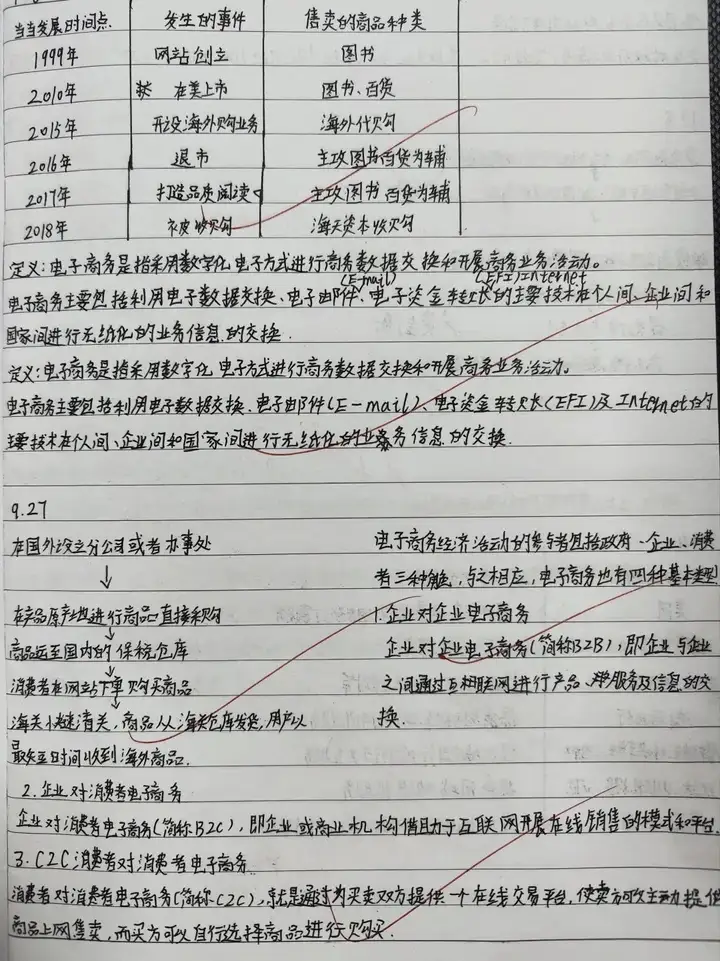 当当发展时间点 发生的事件 售卖的商品种类
1999年 网站创立 图书
2010年 在美上市 图书、百货
2015年 开设海外购业务 海外代购
2016年 退市 主攻图书百货为辅
2017年 打造品质阅读 主攻图书百货为辅
2018年 被收购 海天资本收购
定义:电子商务是指采用数字化电子方式进行商务数据交换和开展商务业务活动。
(E-mail) (EFI)Internet
电子商务主要包括利用电子数据交换、电子邮件、电子资金转账的主要技术在个人间、企业间和
国家间进行无纸化的业务信息的交换.
定义:电子商务是指采用数字化电子方式进行商务数据交换和开展商务业务活动。
电子商务主要包括利用电子数据交换、电子邮件(E-mail)、电子资金转账(EFI)及Internet的
主要技术在个人间、企业间和国家间进行无纸化的业务信息的交换.
9.27
在国外设立分公司或者办事处
↓
在产品原产地进行商品直接采购
↓
商品运至国内的保税仓库
↓
消费者在网站下单购买商品
↓
海关快速清关,商品从海关仓库发货,用户以
最短时间收到海外商品.
电子商务经济活动的参与者包括政府、企业、消费
者三种角色,与之相应,电子商务也有四种基本类型
1.企业对企业电子商务
企业对企业电子商务(简称B2B),即企业与企业
之间通过互相联网进行产品、服务及信息的交
换.
2.企业对消费者电子商务
企业对消费者电子商务(简称B2C),即企业或商业机构借助于互联网开展在线销售的模式和平台.
3.C2C消费者对消费者电子商务
消费者对消费者电子商务(简称C2C),就是通过为买卖双方提供一个在线交易平台,使卖方可以主动提供
商品上网售卖,而买方可以自行选择商品进行购买.